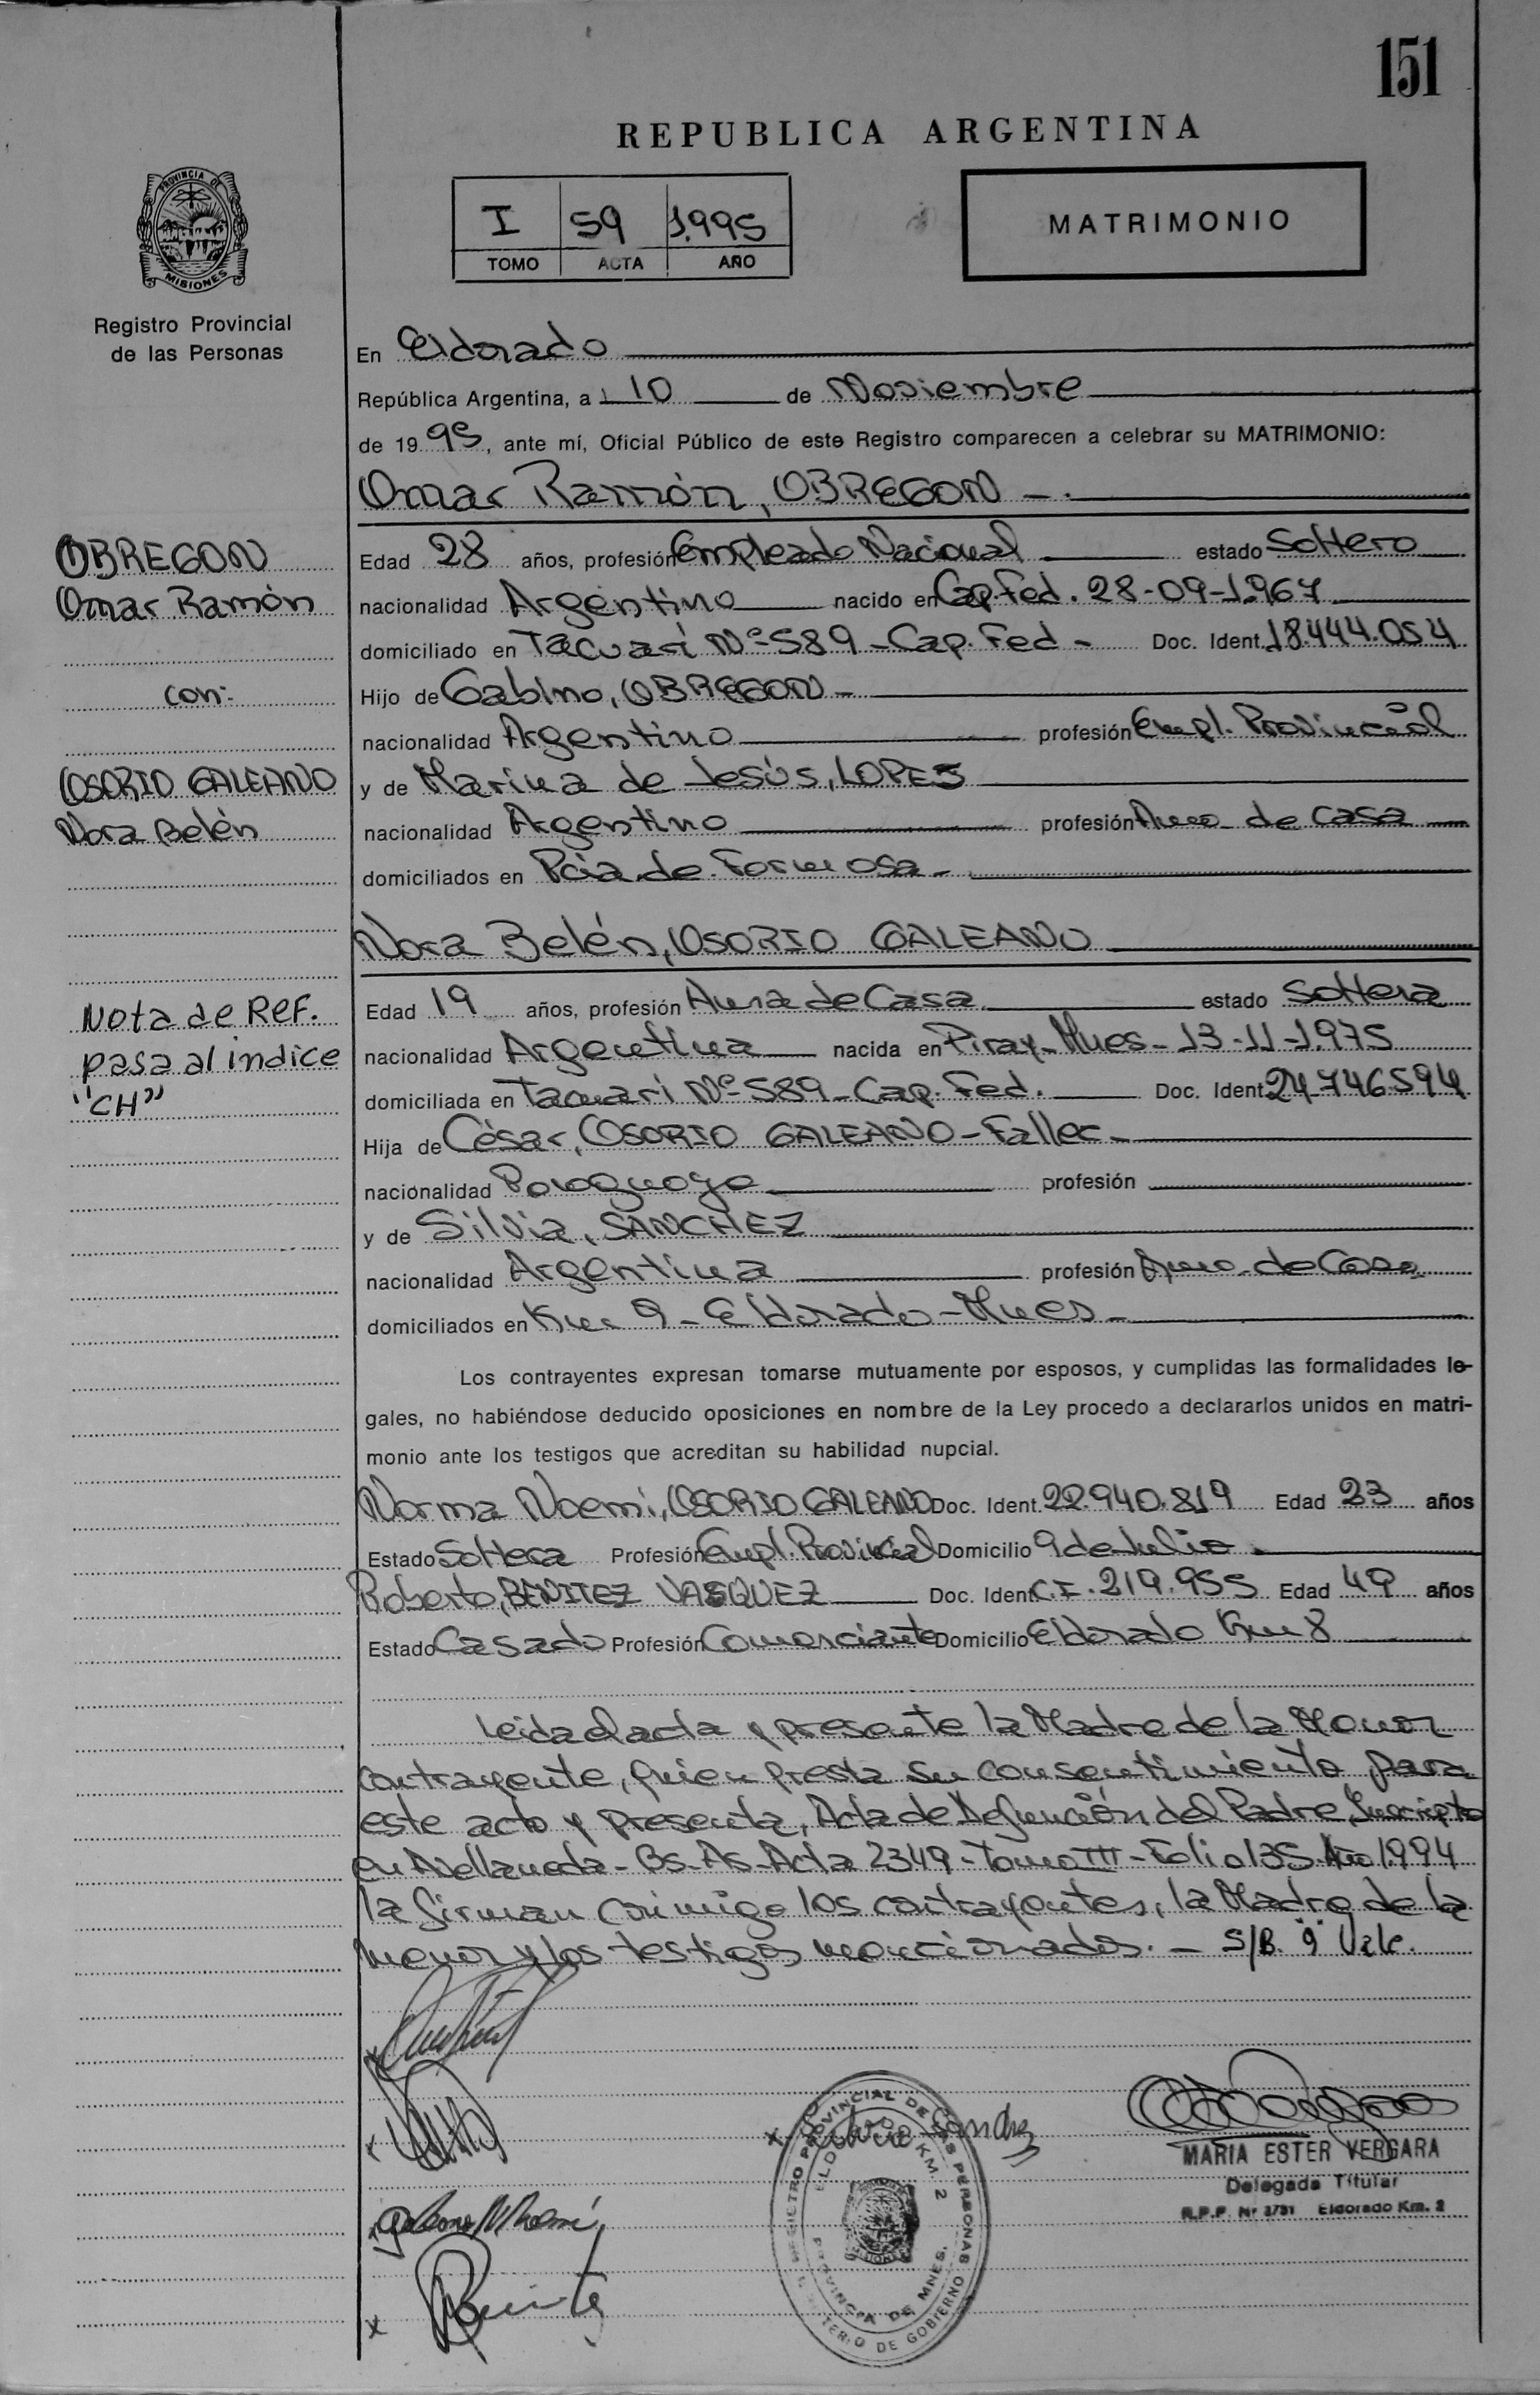 151
REPUBLICA ARGENTINA
PROVINCIA DE
MISIONES
I 59 1.995
TOMO ACTA AÑO
MATRIMONIO
Registro Provincial
de las Personas
En Eldorado
República Argentina, a 10 de Noviembre
de 1995, ante mí, Oficial Público de este Registro comparecen a celebrar su MATRIMONIO:
Omar Ramón, OBREGON -.
OBREGON
Omar Ramón
con:
OSORIO GALEANO
Nora Belén
Nota de Ref.
pasa al indice
"CH"
Edad 28 años, profesión Empleado Nacional estado Soltero
nacionalidad Argentino nacido en Cap. Fed. 28-09-1.967
domiciliado en Tacuarí Nº 589 - Cap. Fed - Doc. Ident. 18.444.054
Hijo de Gabino, OBREGON -
nacionalidad Argentino profesión Empl. Provincial
y de Marina de Jesús, LOPES
nacionalidad Argentino profesión Ama de casa
domiciliados en Pcia. de Formosa -
Nora Belén, OSORIO GALEANO
Edad 19 años, profesión Ama de Casa estado Soltera
nacionalidad Argentina nacida en Piray - Mnes - 13-11-1.975
domiciliada en Tacuarí Nº 589 - Cap. Fed. Doc. Ident. 24.746.594
Hija de César, OSORIO GALEANO - Fallec -
nacionalidad Paraguaya profesión
y de Silvia, SANCHEZ
nacionalidad Argentina profesión Ama de Casa
domiciliados en Km 9 - Eldorado - Mnes -
Los contrayentes expresan tomarse mutuamente por esposos, y cumplidas las formalidades le-
gales, no habiéndose deducido oposiciones en nombre de la Ley procedo a declararlos unidos en matri-
monio ante los testigos que acreditan su habilidad nupcial.
Norma Noemi, OSORIO GALEANO Doc. Ident. 22.940.819 Edad 23 años
Estado Soltera Profesión Empl. Provincial Domicilio 9 de Julio.
Roberto, BENITEZ VASQUEZ Doc. Ident. C.I. 219.955 Edad 49 años
Estado Casado Profesión Comerciante Domicilio Eldorado Km 8
Leida el acta y presente la Madre de la Menor
contrayente, quien presta su consentimiento para
este acto y presenta, Acta de Defunción del Padre, Inscripta
en Avellaneda - Bs. As - Acta 2349 - Tomo III - Folio 135 Año 1.994
la firman conmigo los contrayentes, la Madre de la
menor y los testigos mencionados. - S/B. "g" Vale.
x
x
x Silvia Sanchez
x
x
MARIA ESTER VERGARA
Delegada Titular
R.P.P. Nº 2731 Eldorado Km. 2
REGISTRO PROVINCIAL DE LAS PERSONAS
ELDORADO KM. 2
PROVINCIA DE MNES.
MINISTERIO DE GOBIERNO